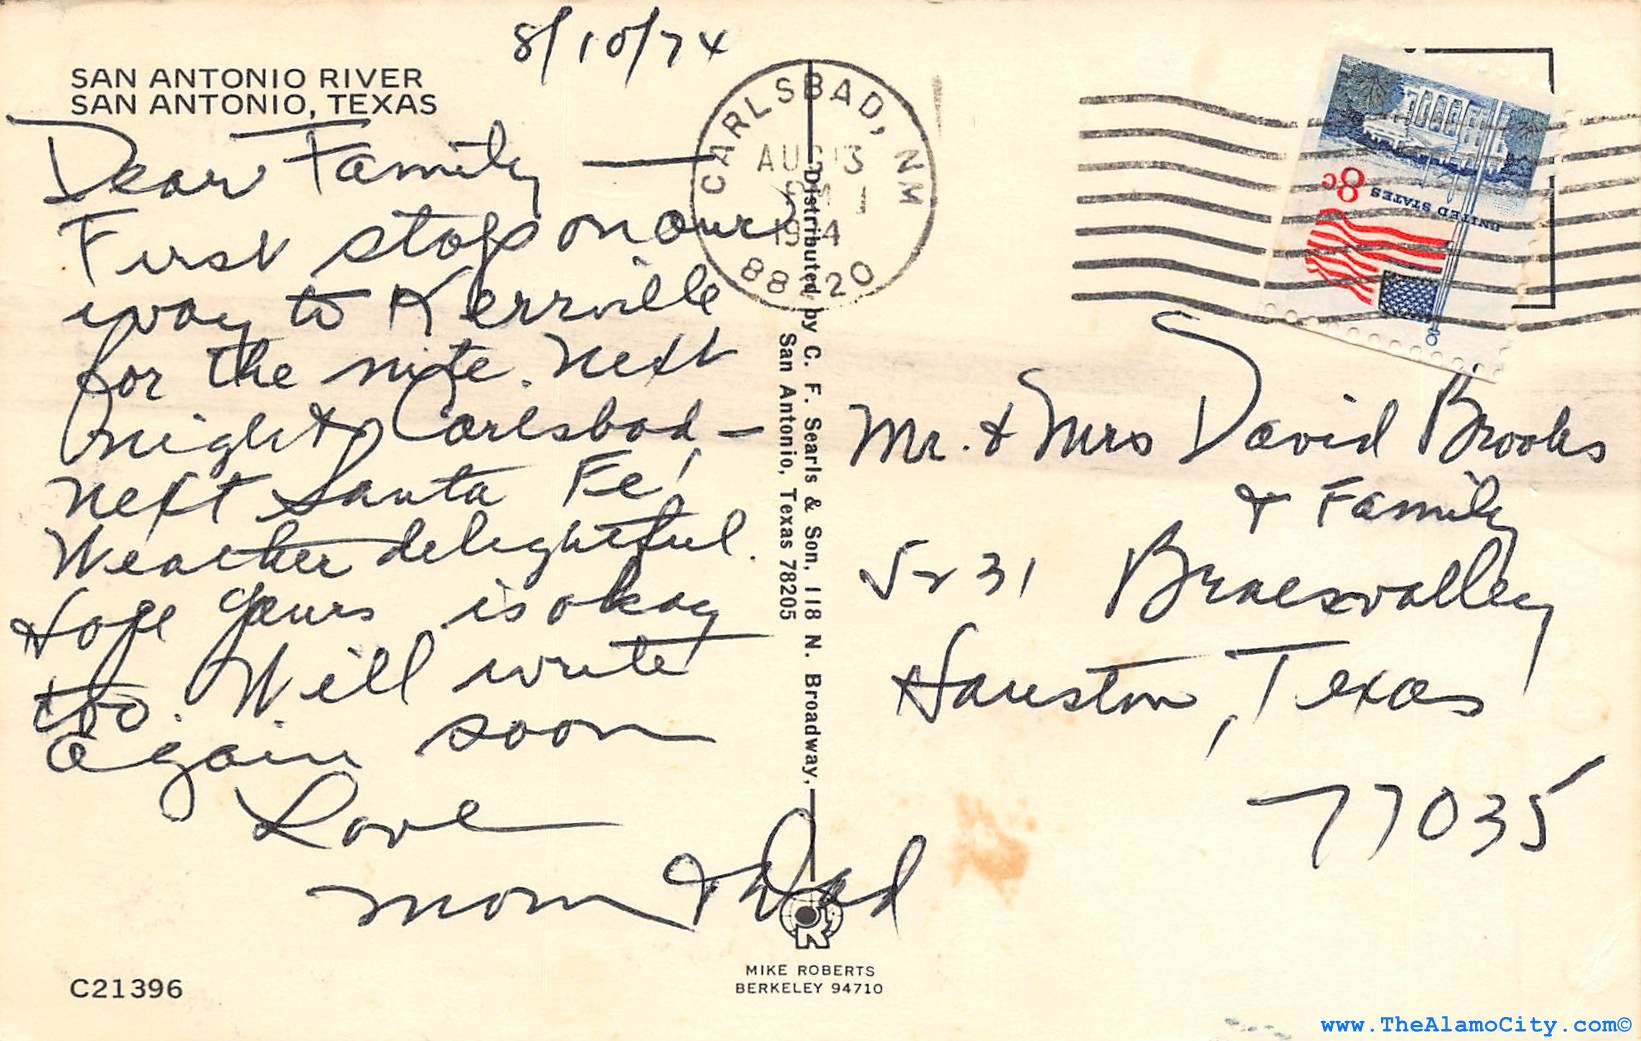 8/10/74
SAN ANTONIO RIVER
SAN ANTONIO, TEXAS
Dear Family —
First stop on our
way to Kerrville
for the nite. Next
night, Carlsbad –
next Santa Fe!
Weather delightful.
Hope yours is okay
too. Will write
again soon
Love
Mom & Dad
C21396
CARLSBAD, NM
AUG 13
PM
1974
88220
Distributed by C. F. Searls & Son, 118 N. Broadway,
San Antonio, Texas 78205
MIKE ROBERTS
BERKELEY 94710
8c
UNITED STATES
Mr. & Mrs David Brooks
& Family
5231 Braesvalley
Houston, Texas
77035
www.TheAlamoCity.com©